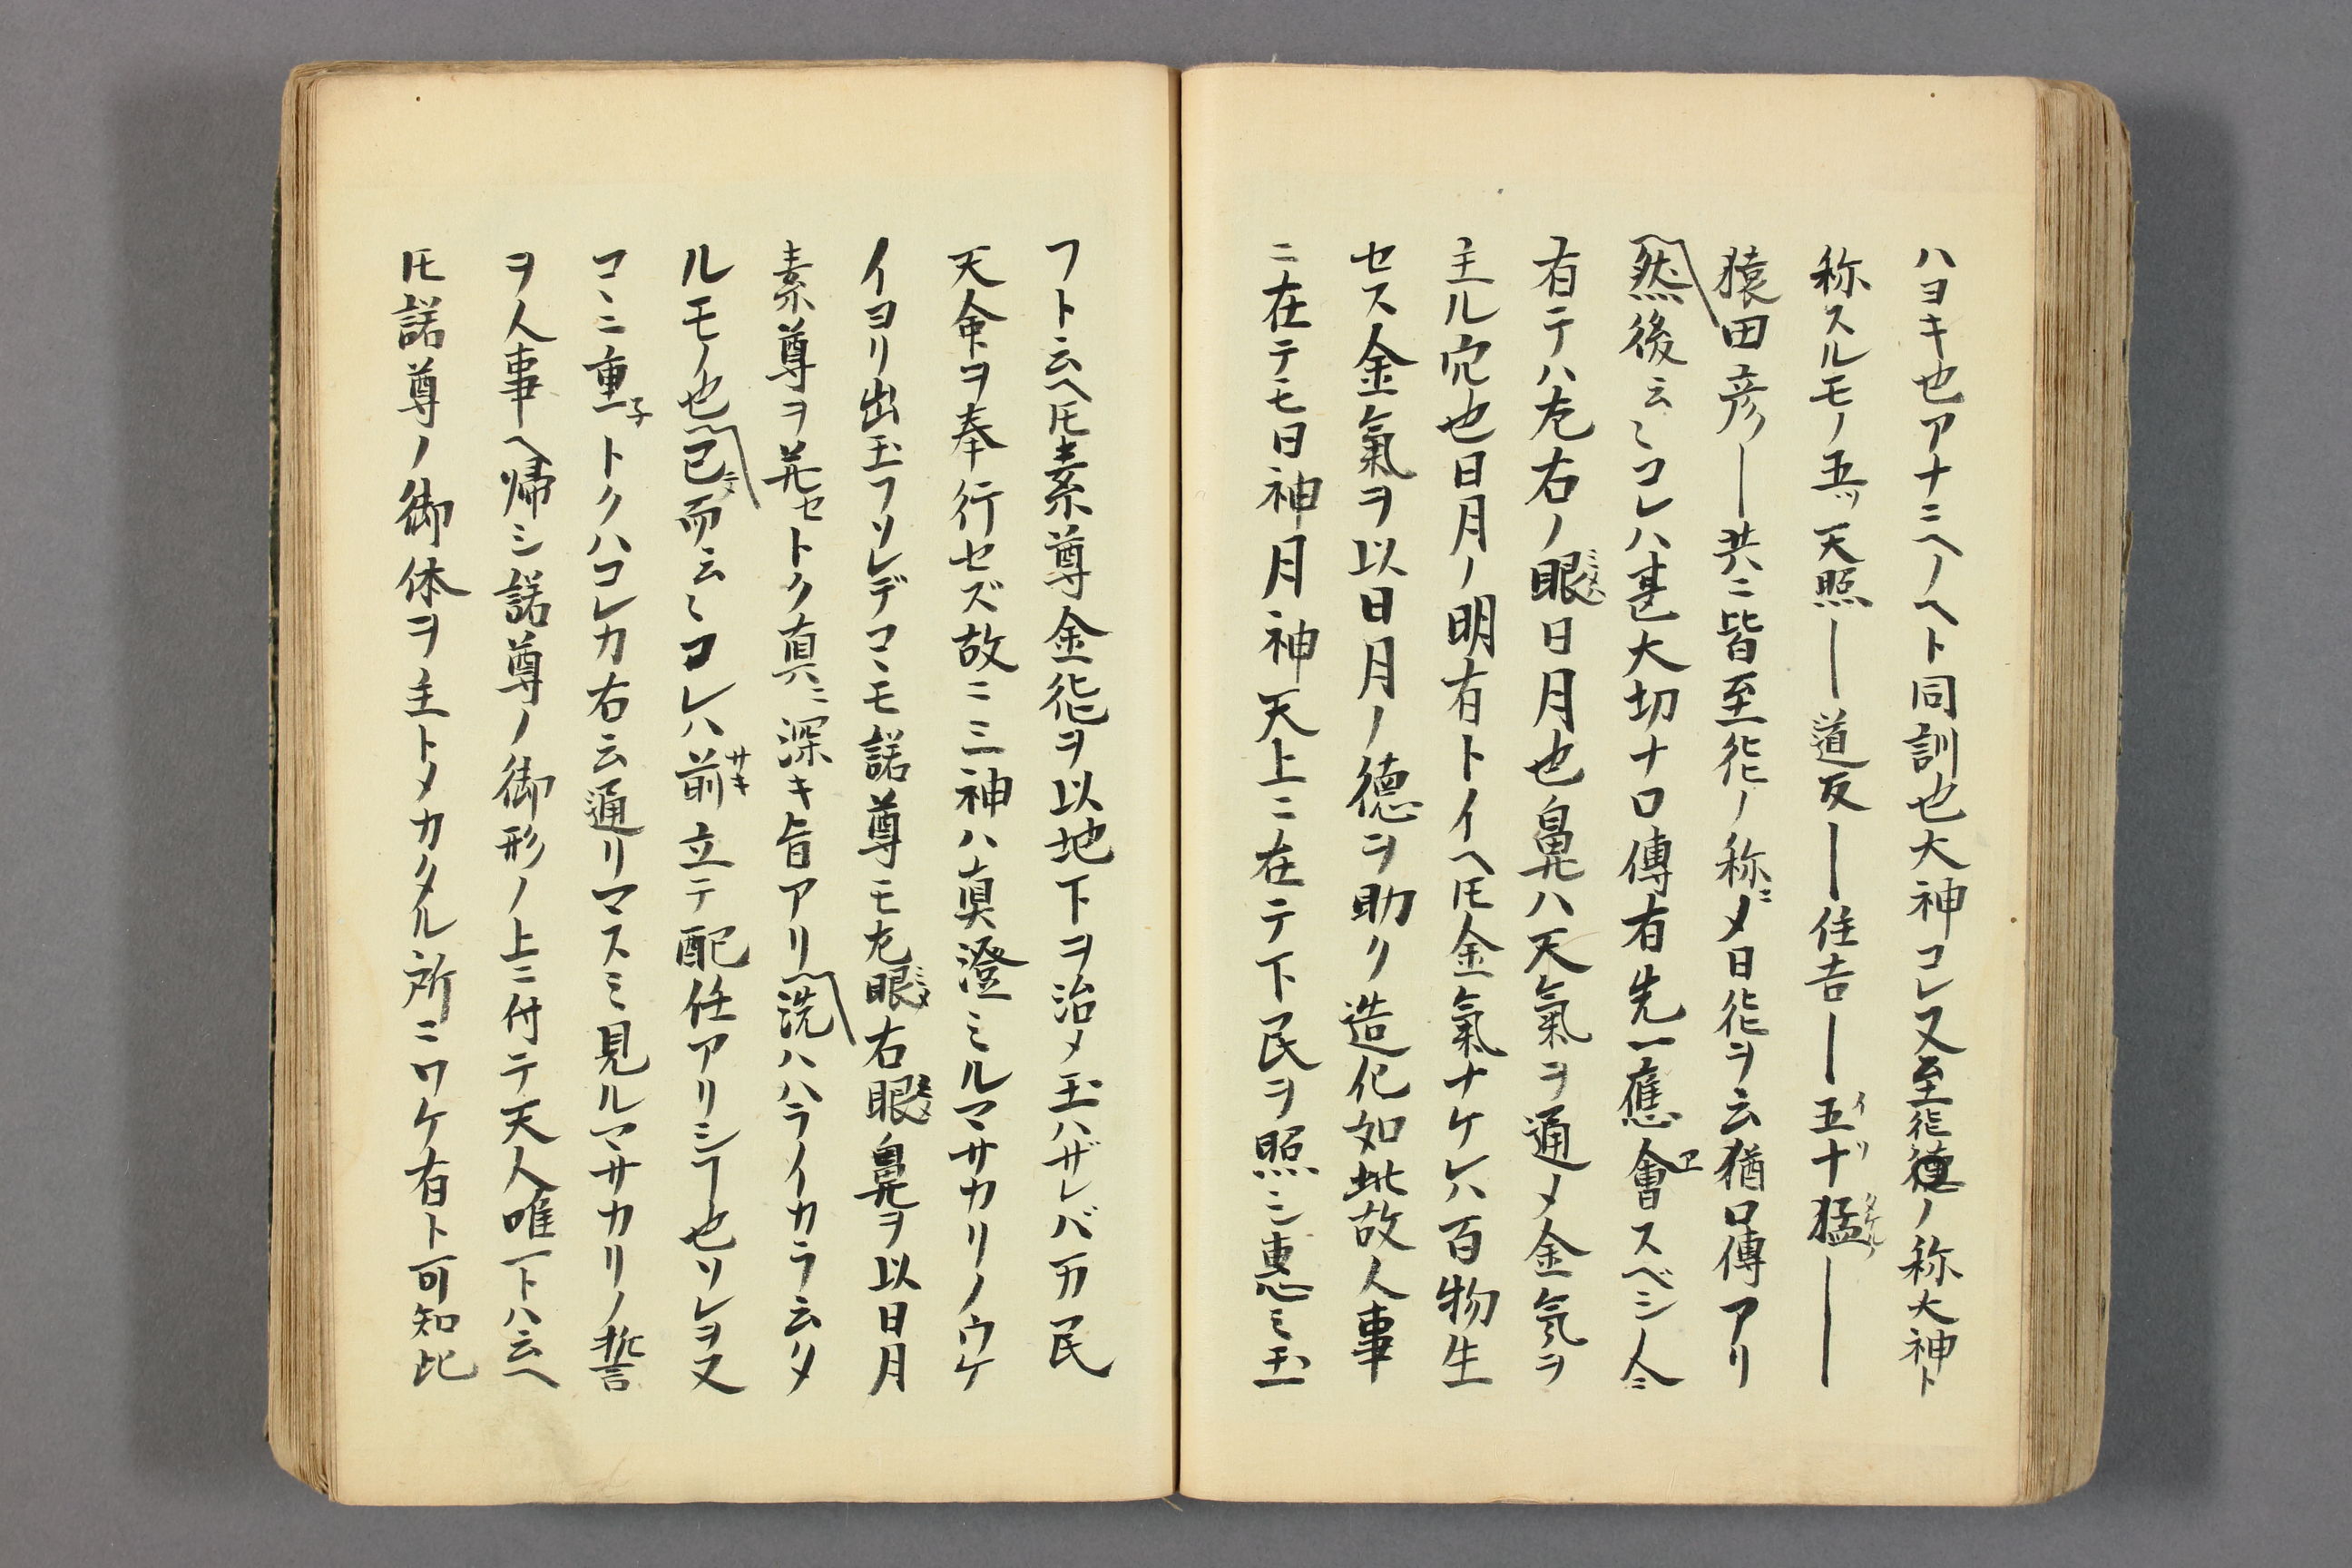 ハヨキ也アナニヘノヘト同訓也大神コレ又至徳ノ称大神ト
称スルモノ五ツ天照――道反――住吉――五十猛――
猿田彦――共ニ皆至徳ノ称ニメ日徳ヲ云猶口傳アリ
然後云〻コレハ甚大切ナ口傳有先一應會スベシ人ニ
有テハ左右ノ眼日月也鼻ハ天氣ヲ通メ金気ヲ
主ル穴也日月ノ明有トイヘ𪜈金氣ナケレハ百物生
セス金氣ヲ以日月ノ德ヲ助ク造化如此故人事
ニ在テモ日神月神天上ニ在テ下民ヲ照シ惠ミ玉
フト云ヘ𪜈素尊金徳ヲ以地下ヲ治メ玉ハザレバ万民
天命ヲ奉行セズ故ニ三神ハ真澄ミルマサカリノウケ
イヨリ出玉フソレデコヽモ諾尊モ左眼右眼鼻ヲ以日月
素尊ヲ並セトク真ニ深キ旨アリ洗ハハライカラ云タ
ルモノ也已而云〻コレハ前立テ配任アリシヿ也ソレヲ又
コヽニ重子トクハコレカ右云通リマスミ見ルマサカリノ誓
ヲ人事ヘ帰シ諾尊ノ御形ノ上ニ付テ天人唯一トハ云ヘ
𪜈諾尊ノ御体ヲ主トメカタル所ニワケ有ト可知比